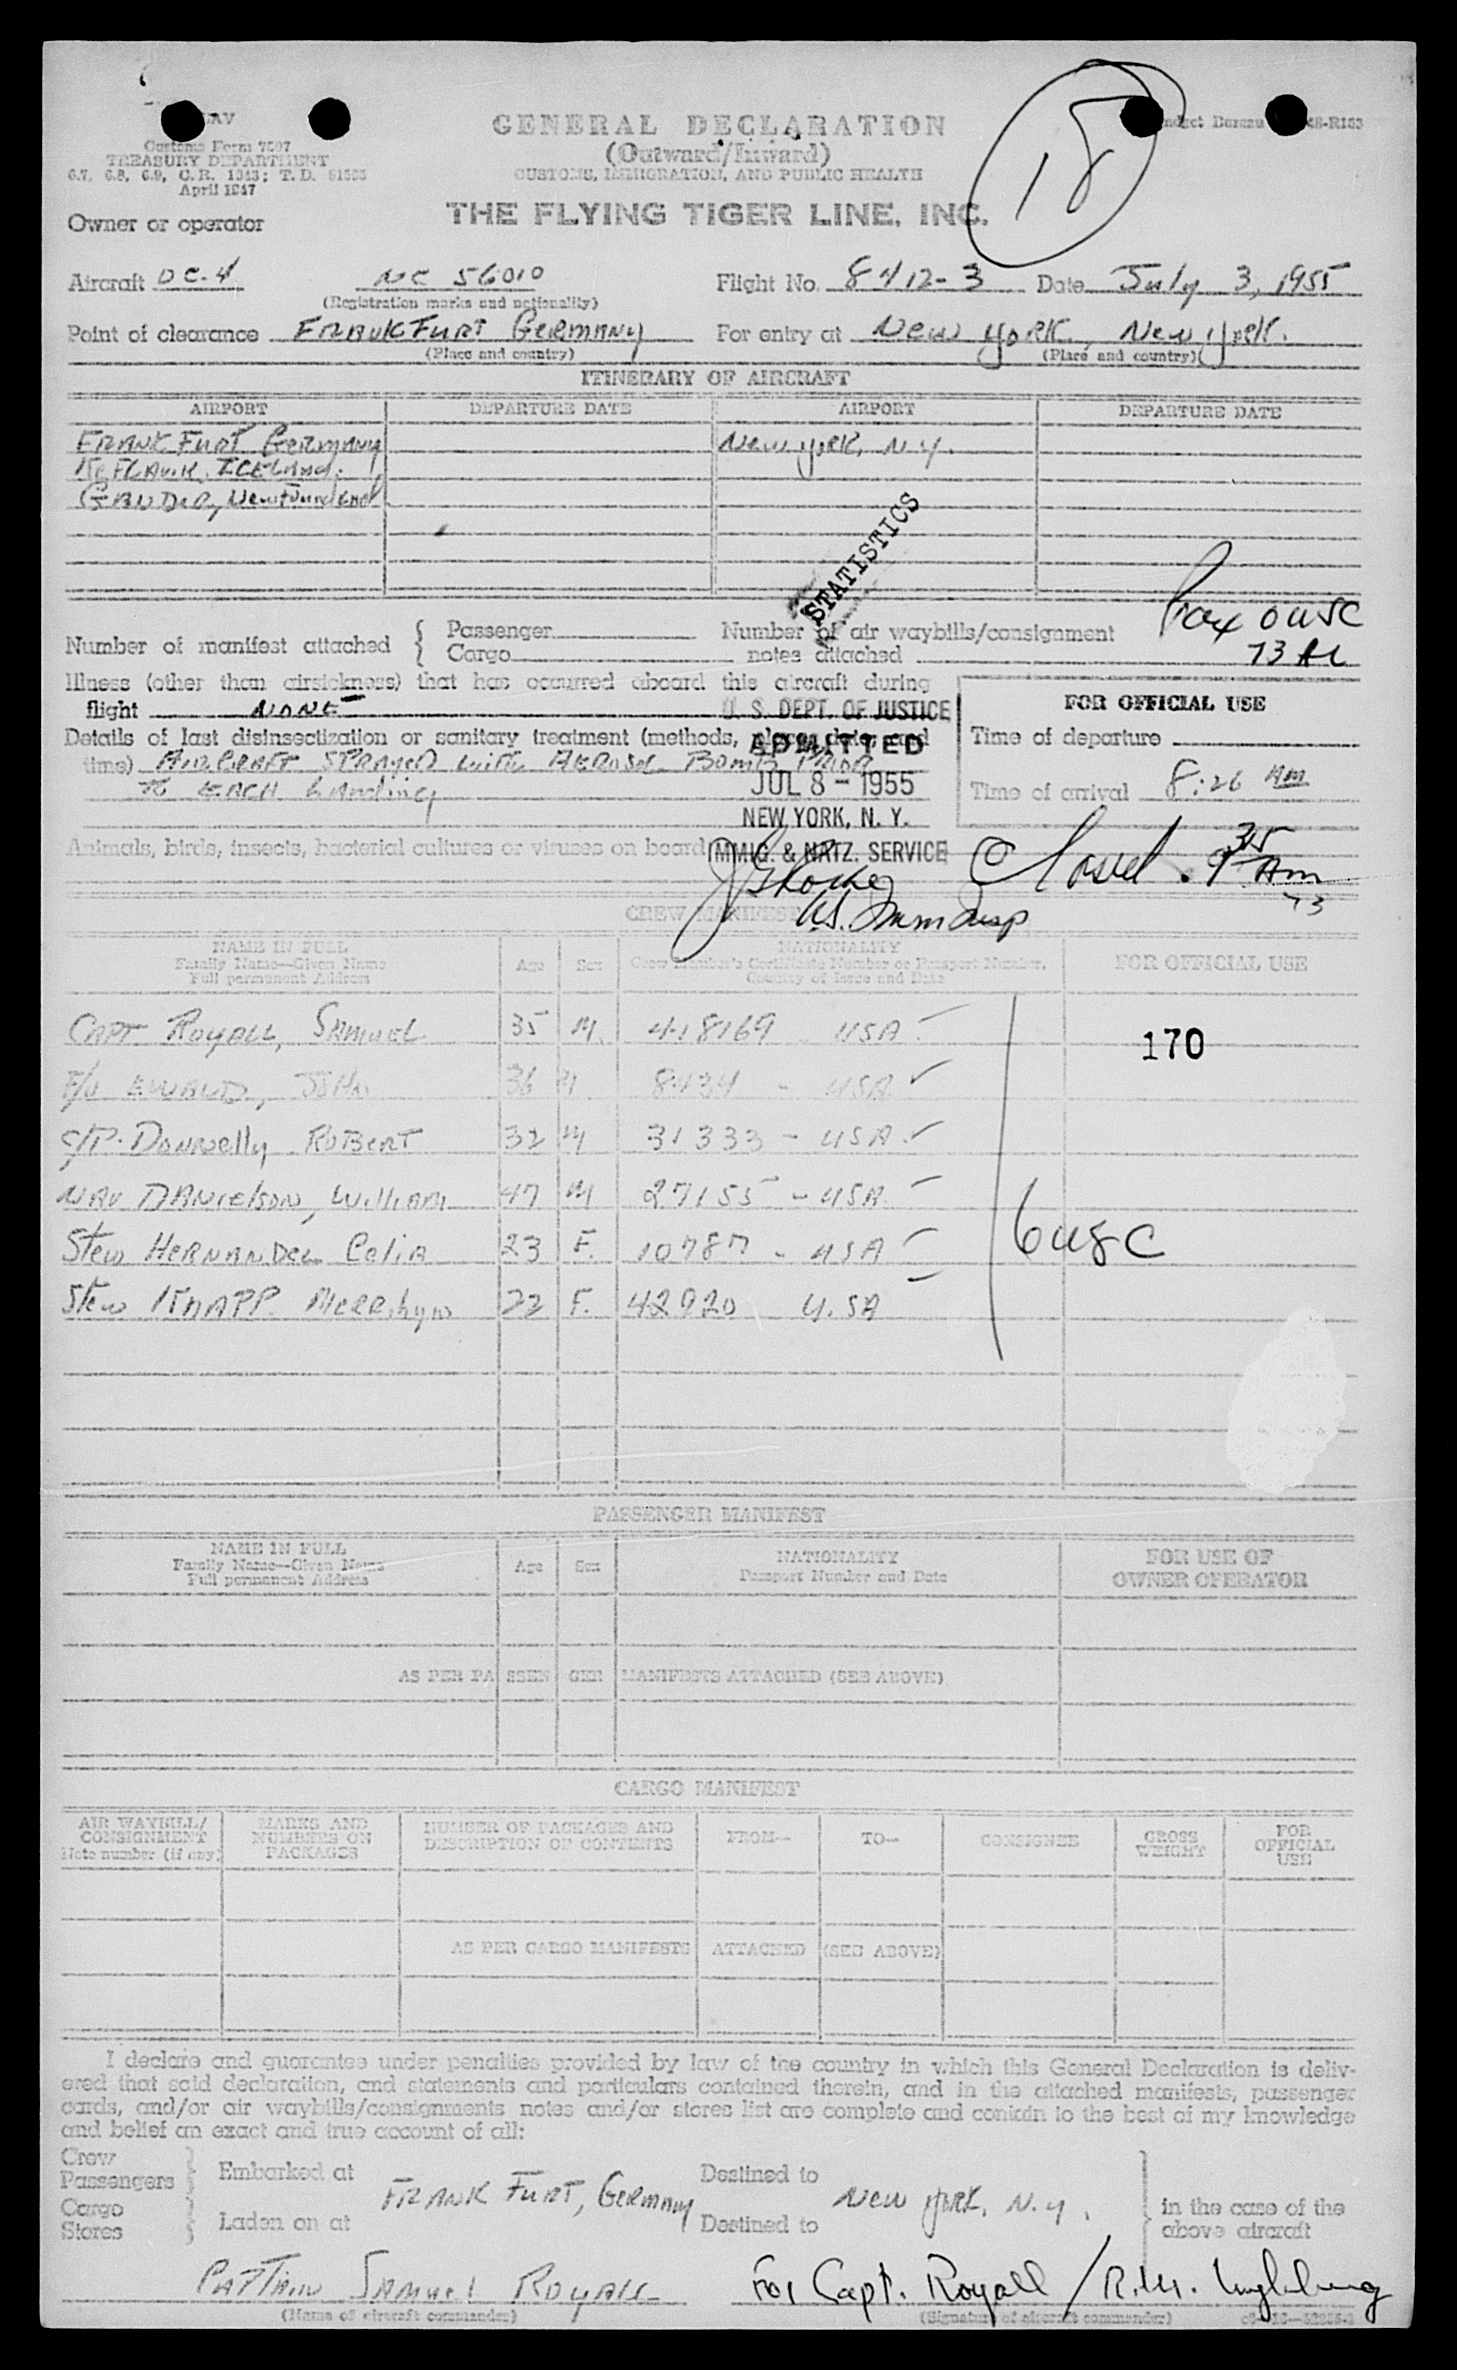 GENERAL DECLARATION
(Outward/Inward)
CUSTOMS, IMMIGRATION, AND PUBLIC HEALTH
Customs Form 7507
TREASURY DEPARTMENT
6.7, 6.8, 6.9, C.R. 1943; T.D. 51505
April 1947
18
THE FLYING TIGER LINE, INC.
Owner or operator
Aircraft DC-4 NC 56010 Flight No. 8412-3 Date July 3, 1955
(Registration marks and nationality)
Point of clearance FRANKFURT GERMANY For entry at New YORK, New York.
(Place and country) (Place and country)
ITINERARY OF AIRCRAFT
AIRPORT DEPARTURE DATE AIRPORT DEPARTURE DATE
FRANKFURT GERMANY New YORK, N.Y.
KEFLAVIK, ICELAND.
GANDER, Newfoundland
STATISTICS
Pax 0 USC
73 AL
Number of manifest attached { Passenger Number of air waybills/consignment
Cargo notes attached
Illness (other than airsickness) that has occurred aboard this aircraft during
flight NONE
Details of last disinsectization or sanitary treatment (methods, place, date, and
time) AIRCRAFT SPRAYED with AEROSOL BOMB PRIOR
to EACH Landing
U. S. DEPT. OF JUSTICE
ADMITTED
JUL 8 - 1955
NEW YORK, N. Y.
IMMIG. & NATZ. SERVICE
U.S. Imm Insp
FOR OFFICIAL USE
Time of departure
Time of arrival 8:26 AM
Closed. 9 35 AM
73
Animals, birds, insects, bacterial cultures or viruses on board
CREW MANIFEST
NAME IN FULL
Family Name—Given Name
Full permanent Address
Age Sex
NATIONALITY
Crew Member's Certificate Number or Passport Number,
Country of Issue and Date
FOR OFFICIAL USE
CAPT ROYALL, SAMUEL 35 M. 418169 USA
170
F/O EWALD, JOHN 36 M 8434 - USA
C/P. DONNelly ROBERT 32 M 31333 - USA
NAV DANIELSON, William 47 M 27155 - USA
Stew HERNANDEZ Celia 23 F. 10787 - USA
6 USC
Stew KNAPP Merrilyn 22 F. 42920 U.SA
PASSENGER MANIFEST
NAME IN FULL
Family Name—Given Name
Full permanent Address
Age Sex
NATIONALITY
Passport Number and Date
FOR USE OF
OWNER OPERATOR
AS PER PASSENGER MANIFESTS ATTACHED (SEE ABOVE)
CARGO MANIFEST
AIR WAYBILL/
CONSIGNMENT
Note number (if any)
MARKS AND
NUMBERS ON
PACKAGES
NUMBER OF PACKAGES AND
DESCRIPTION OF CONTENTS
FROM—
TO—
CONSIGNEE
GROSS
WEIGHT
FOR
OFFICIAL
USE
AS PER CARGO MANIFESTS ATTACHED (SEE ABOVE)
I declare and guarantee under penalties provided by law of the country in which this General Declaration is deliv-
ered that said declaration, and statements and particulars contained therein, and in the attached manifests, passenger
cards, and/or air waybills/consignments notes and/or stores list are complete and contain to the best of my knowledge
and belief an exact and true account of all:
Crew
Passengers } Embarked at FRANKFURT, GERMANY Destined to New YORK, N.Y. in the case of the
Cargo
Stores } Laden on at Destined to above aircraft
CAPTAIN SAMUEL ROYALL For Capt. Royall / R.W.
(Name of aircraft commander) (Signature of aircraft commander)